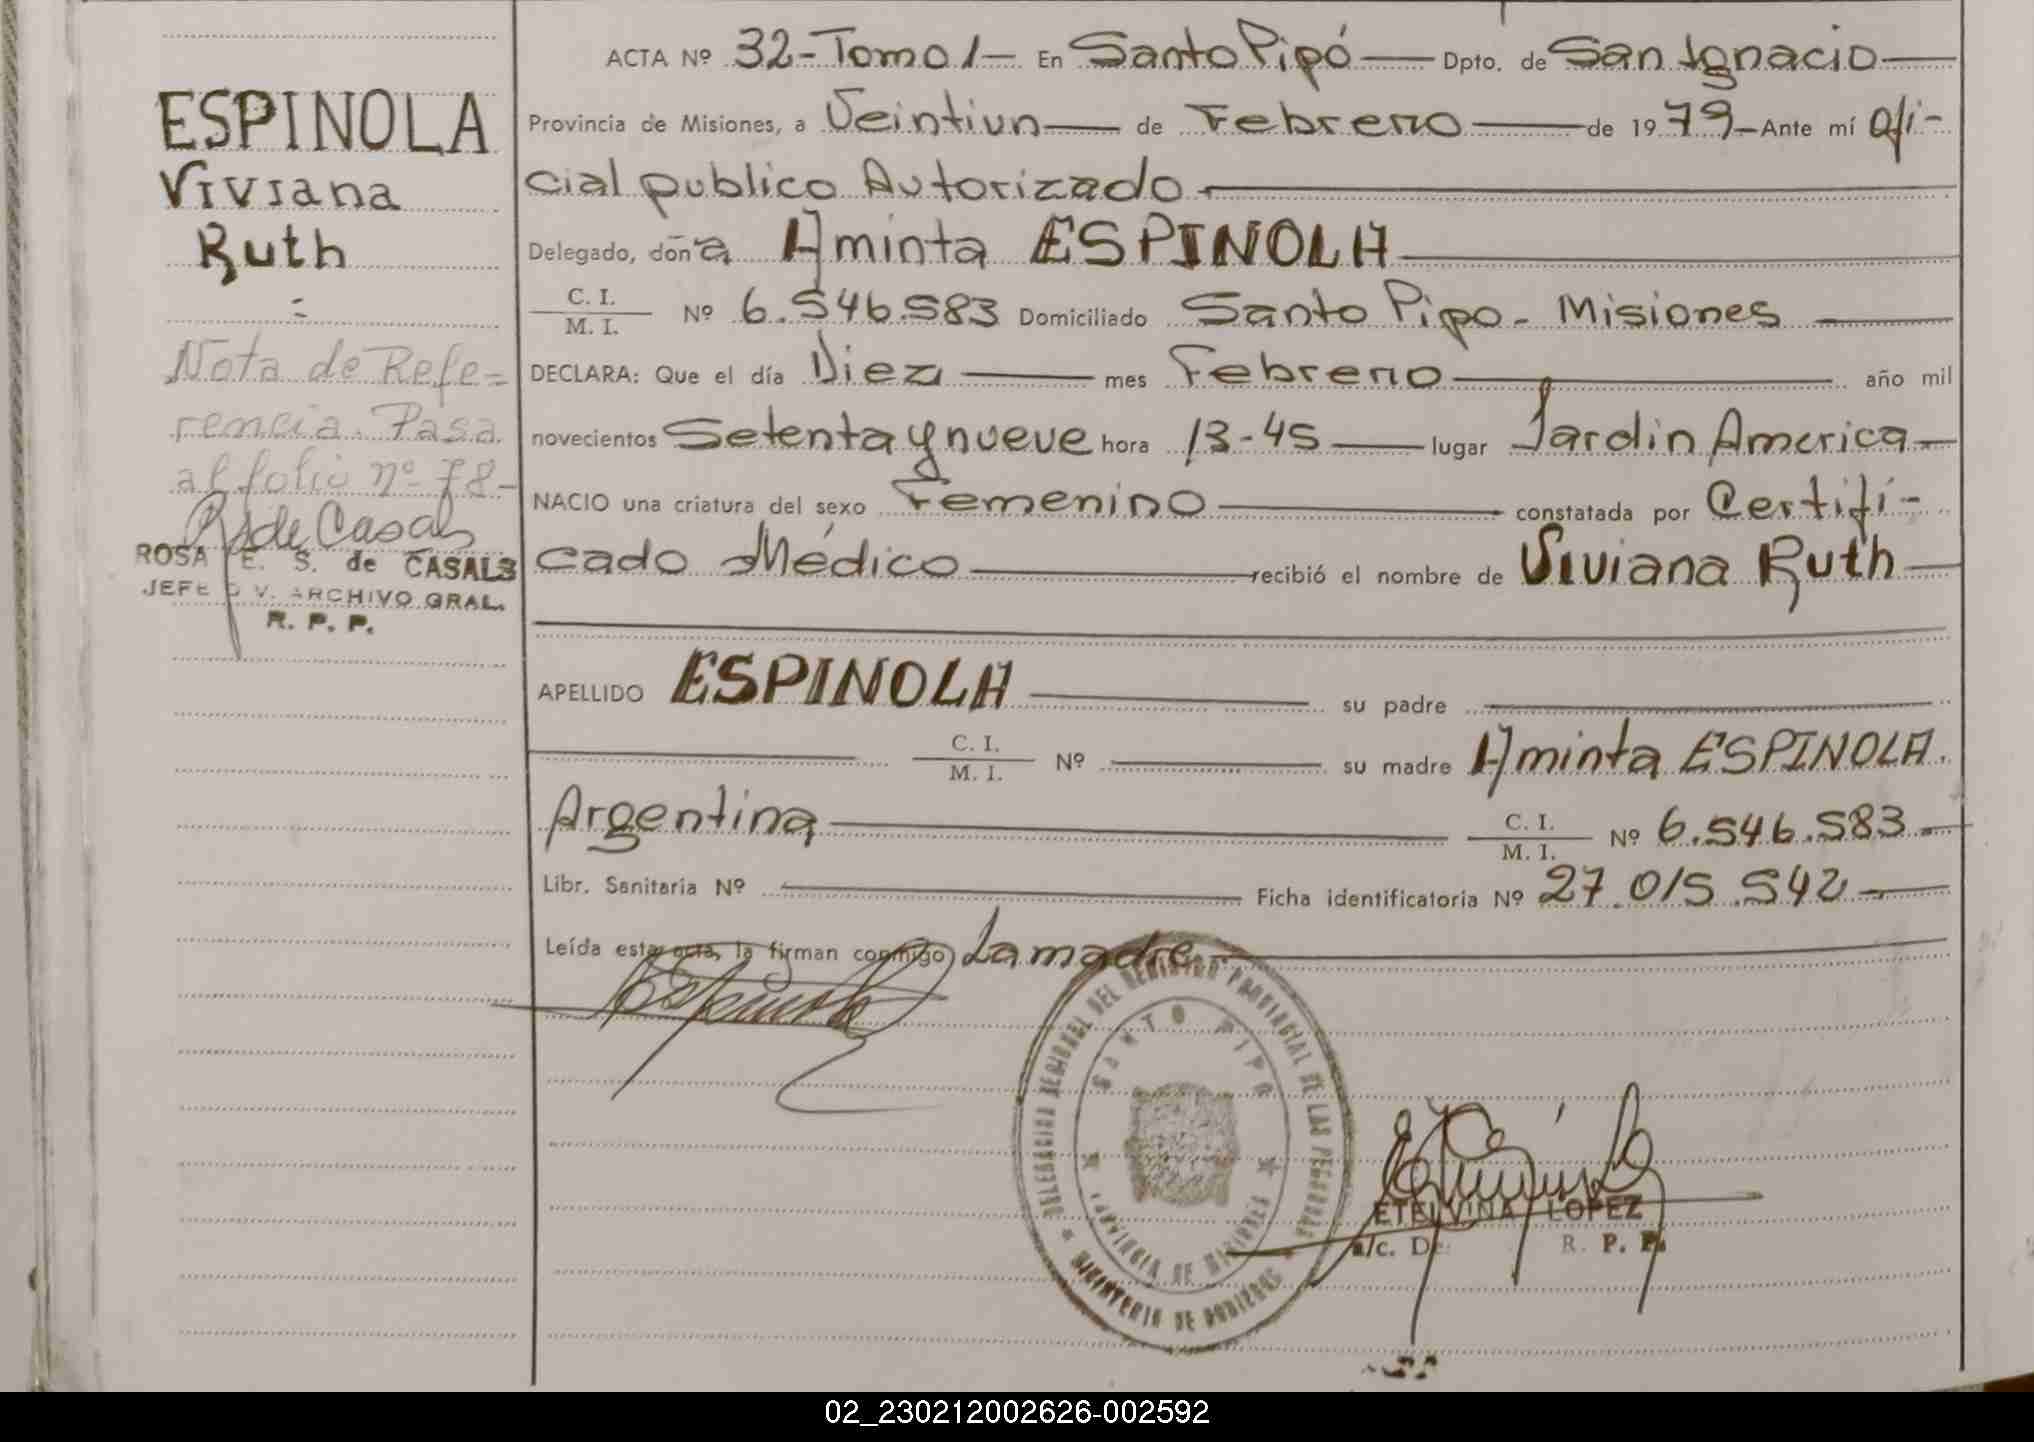 ESPINOLA
Viviana
Ruth
=
Nota de Refe=
rencia. Pasa
al folio nº 78-
R S de Casals
ROSA E. S. de CASALS
JEFE DIV. ARCHIVO GRAL.
R. P. P.
ACTA Nº 32-Tomo 1- En Santo Pipó Dpto. de San Ignacio
Provincia de Misiones, a Veintiun de Febrero de 1979-Ante mí Ofi-
cial publico Autorizado
Delegado, doña Aminta ESPINOLA
C. I.
M. I. Nº 6.546.583 Domiciliado Santo Pipo- Misiones
DECLARA: Que el día Diez mes Febrero año mil
novecientos Setenta y nueve hora 13-45 lugar Jardin America
NACIO una criatura del sexo Femenino constatada por Certifi-
cado Médico recibió el nombre de Viviana Ruth
APELLIDO ESPINOLA su padre
C. I.
M. I. Nº su madre Aminta ESPINOLA.
Argentina C. I.
M. I. Nº 6.546.583
Libr. Sanitaria Nº Ficha identificatoria Nº 27.015.542
Leída esta acta, la firman conmigo La madre
Espinola
DELEGACION REGIONAL DEL REGISTRO PROVINCIAL DE LAS PERSONAS
SANTO PIPO
PROVINCIA DE MISIONES
MINISTERIO DE GOBIERNO
ETELVINA LOPEZ
a/c. De R. P. P.
02_230212002626-002592